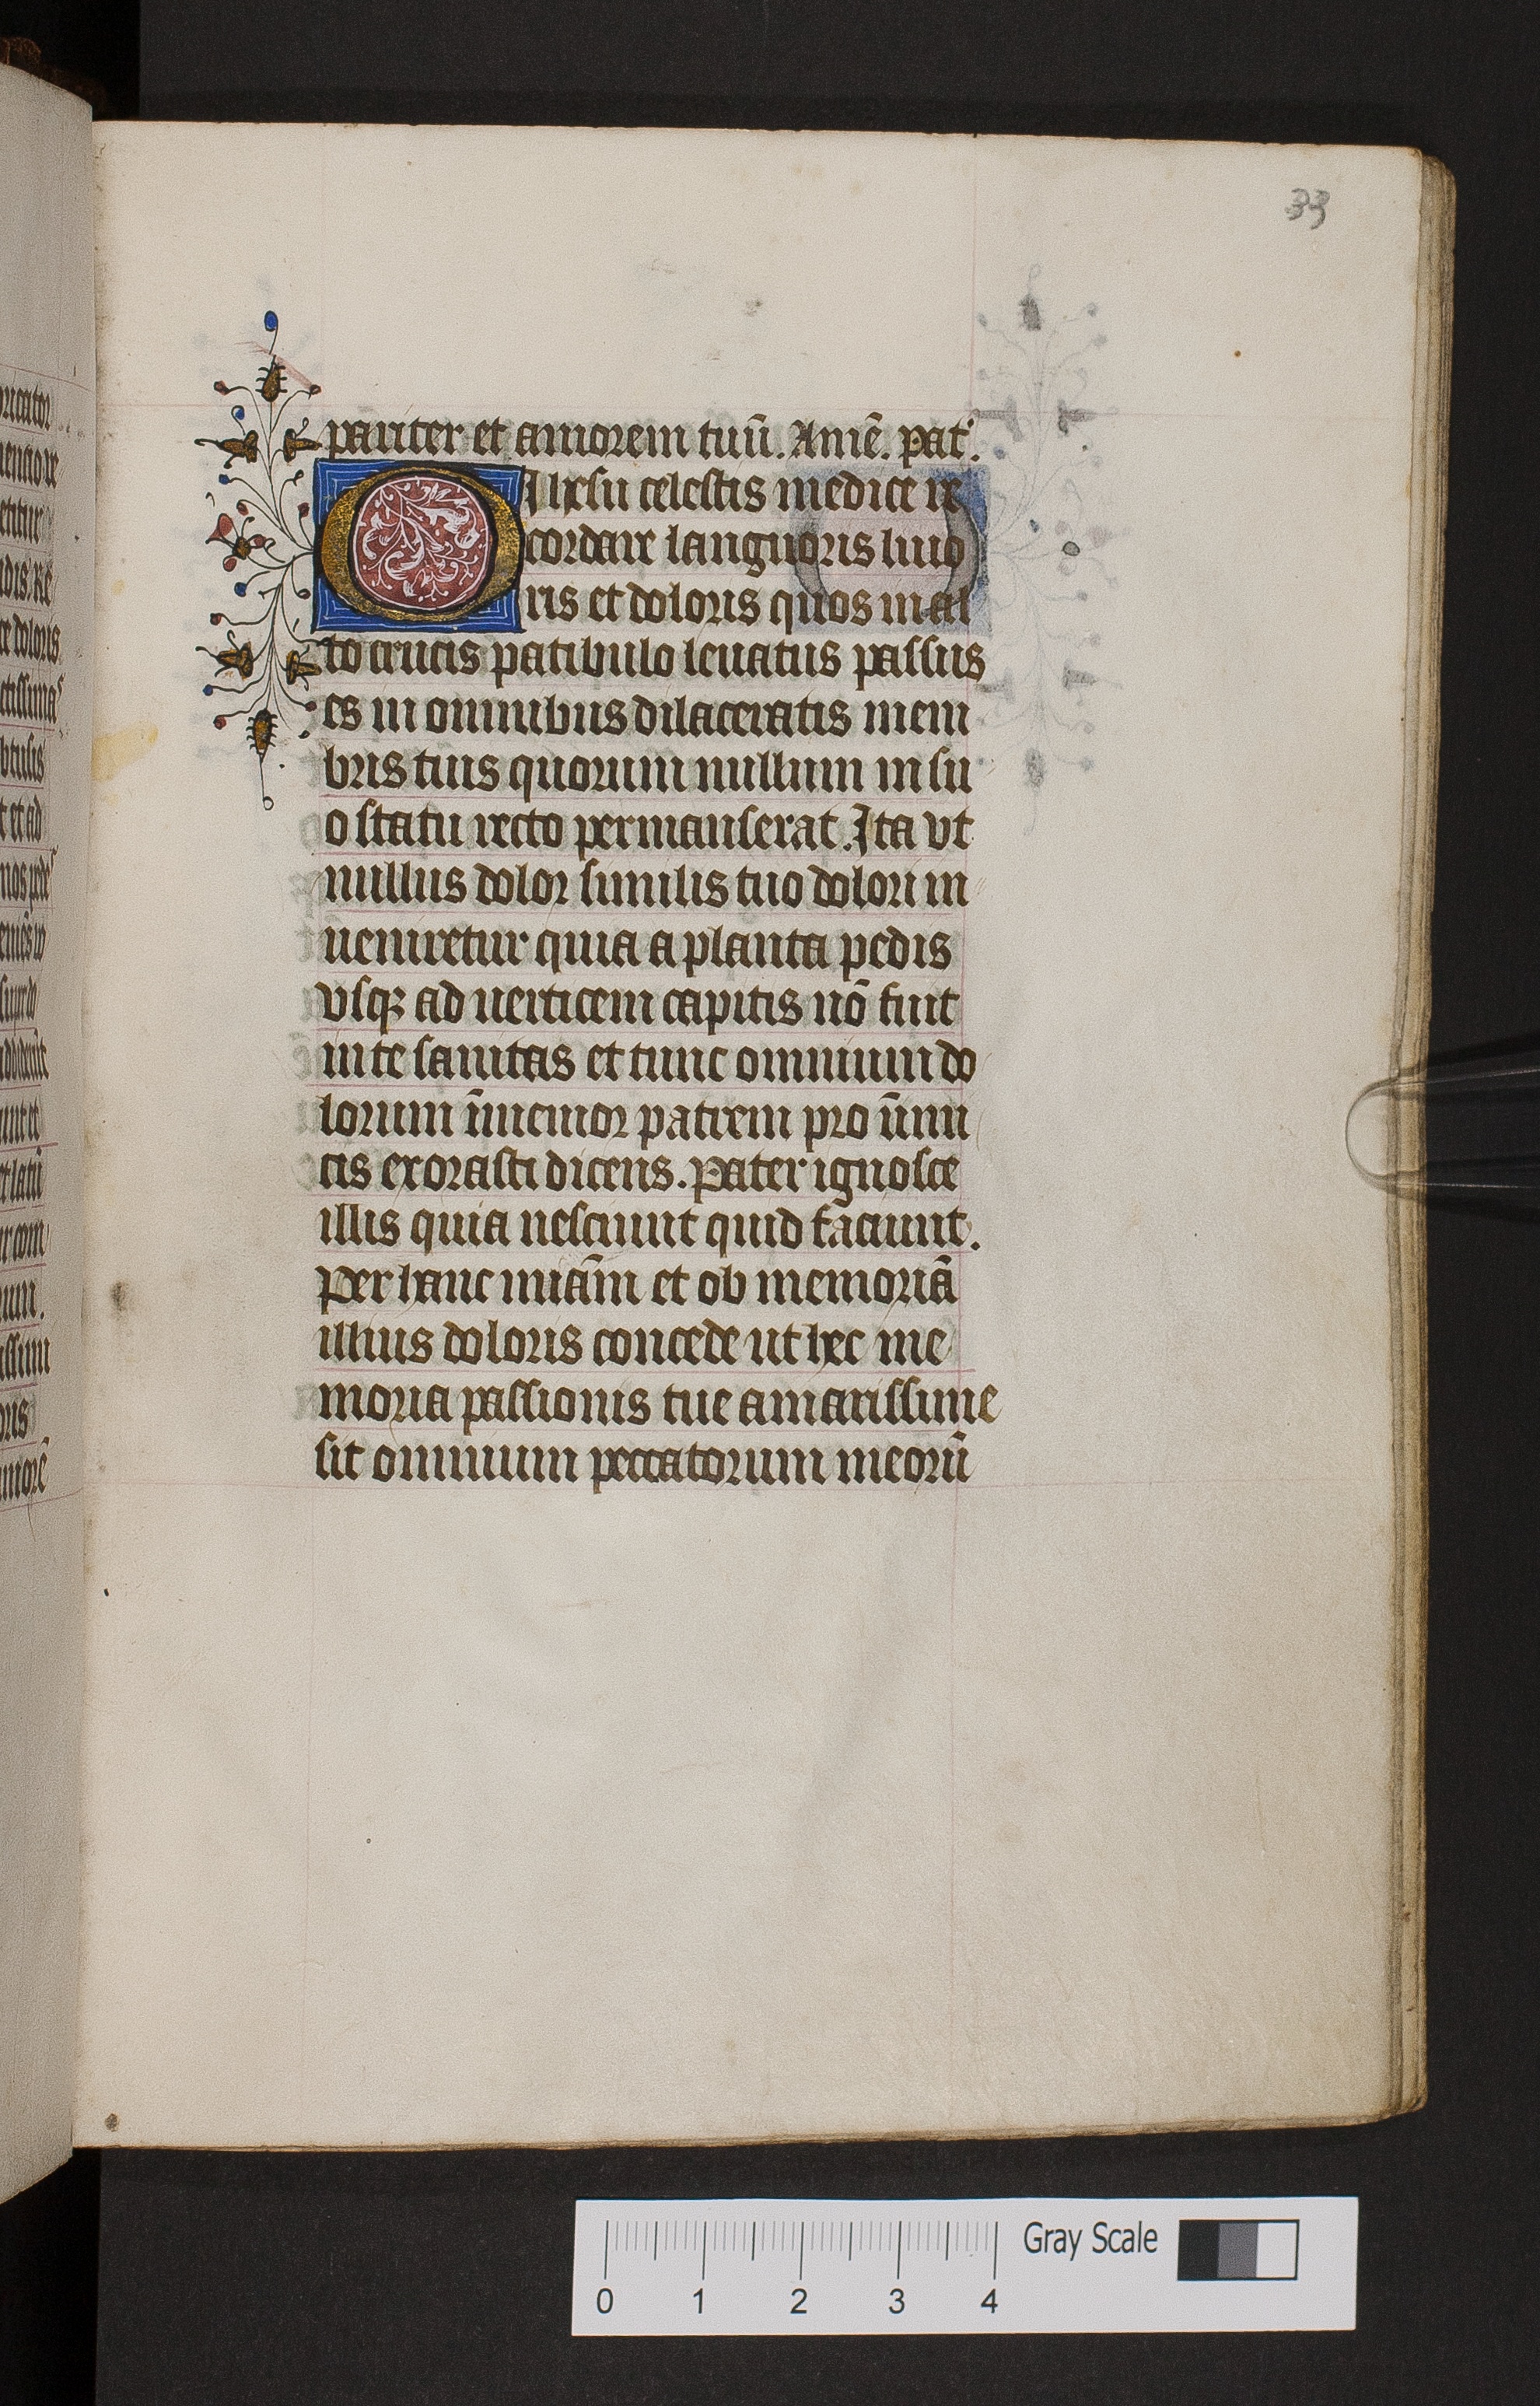 33
pariter et amorem tuū. Amē. pat᷑.
O Ihesu celestis medice re
cordare languoris liuo
ris et doloris quos in al
to crucis patibulo leuatus passus
es in omnibus dilaceratis mem
bris tuis quorum nullum in su
o statu recto permanserat. Ita vt
nullus dolor similis tuo dolori in
ueniretur quia a planta pedis
vsqꝫ ad uerticem capitis nō fuit
in te sanitas et tunc omnium do
lorum īmemor patrem pro inimi
cis exorasti dicens. Pater ignosce
illis quia nesciunt quid faciunt.
Per hanc miā̄m et ob memoriā
illius doloris concede ut hec me
moria passionis tue amarissime
sit omnium peccatorum meorū
Gray Scale
0 1 2 3 4